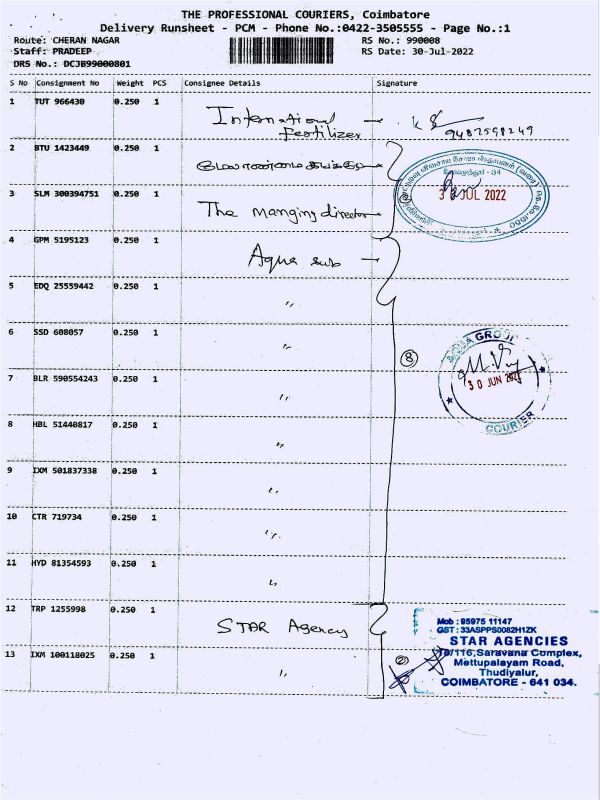 THE PROFESSIONAL COURIERS, Coimbatore
Delivery Runsheet - PCM - Phone No.:0422-3505555 - Page No.:1
Route: CHERAN NAGAR RS No.: 990008
Staff: PRADEEP RS Date: 30-Jul-2022
DRS No.: DCJB99000801
S No Consignment No Weight PCS Consignee Details Signature
1 TUT 966430 0.250 1 International
Fertilizer 9487598249
2 BTU 1423449 0.250 1
3 SLM 300394751 0.250 1 The Manging director
கோயமுத்தூர் - 34
3 0 JUL 2022
4 GPM 5195123 0.250 1 Aqua sub
5 EDQ 25559442 0.250 1 "
6 SSD 608057 0.250 1 "
7 BLR 590554243 0.250 1 "
8
AQUA GROUP
3 0 JUN 2022
COURIER
8 HBL 51440817 0.250 1 "
9 IXM 501837338 0.250 1 "
10 CTR 719734 0.250 1 "
11 HYD 81354593 0.250 1 "
12 TRP 1255998 0.250 1 STAR Agency
Mob : 95975 11147
GST : 33ASPPS0082H1ZK
STAR AGENCIES
13 IXM 100118025 0.250 1 "
2
/116,Saravana Complex,
Mettupalayam Road,
Thudiyalur,
COIMBATORE - 641 034.